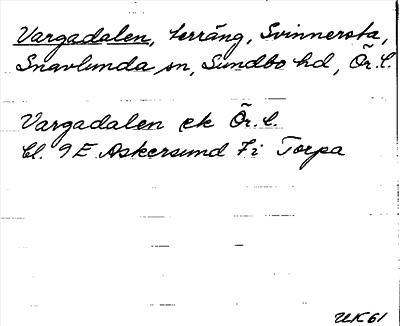 Vargadalen, terräng, Svinnersta,
Snavlunda sn, Sundbo hd, Ör. l.
Vargadalen ek Ör. l.
bl. 9E Askersund 7i Torpa
UK61